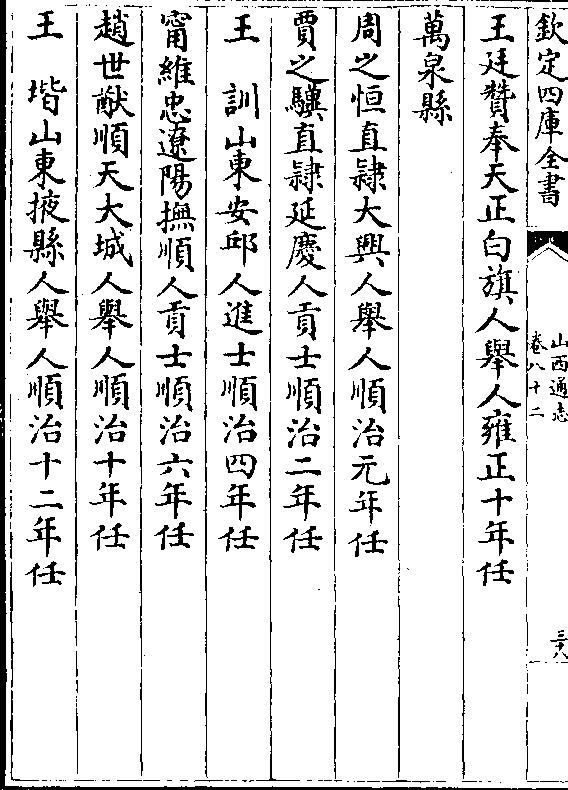 欽定四庫全書
山西通志
卷八十二
三十八
王廷贊奉天正白旗人舉人雍正十年任
萬泉縣
周之恒直隸大興人舉人順治元年任
賈之驥直隸延慶人貢士順治二年任
王　訓山東安邱人進士順治四年任
甯維忠遼陽撫順人貢士順治六年任
趙世猷順天大城人舉人順治十年任
王　堦山東掖縣人舉人順治十二年任